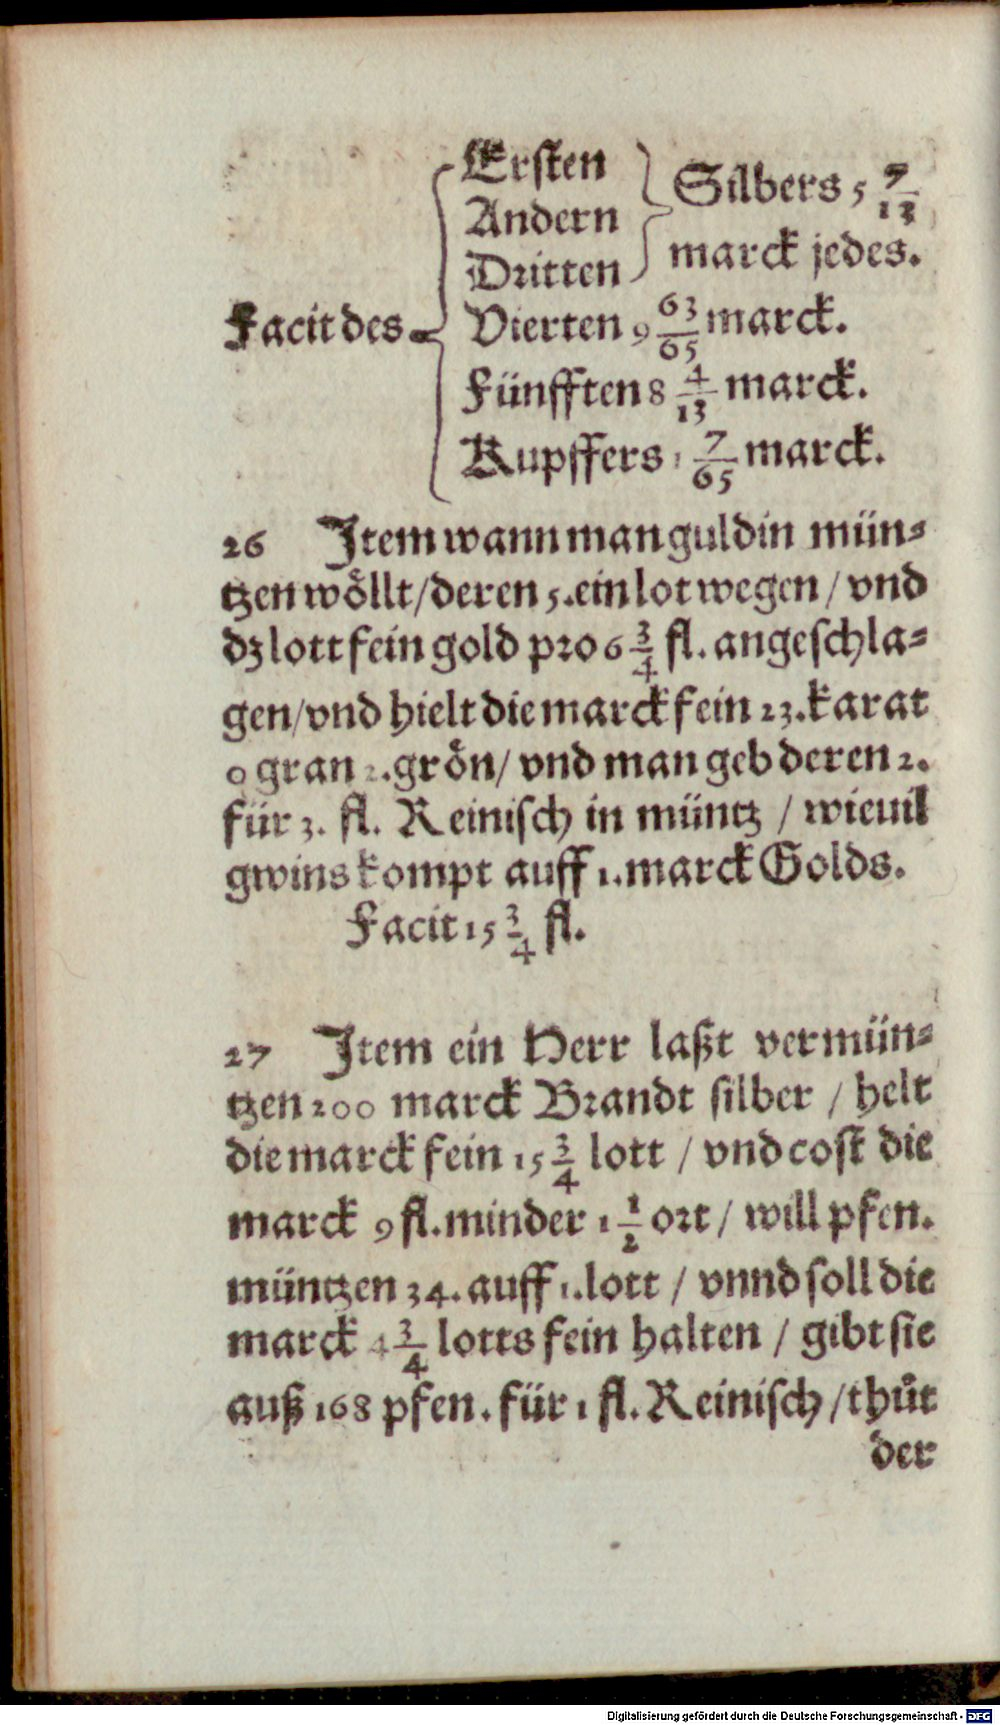 Ersten
Andern
Dritten
Silbers 5 7/13
marck jedes.
Facit des
Vierten 9 63/65 marck.
Fünfften 8 4/13 marck.
Kupffers 1 7/65 marck.
26 Item wann man guldin mün⸗
tzen wöllt/deren 5. ein lot wegen / vnd
dz lott fein gold pro 6 3/4 fl. angeschla⸗
gen/vnd hielt die marck fein 23. karat
0 gran 2. grön/ vnd man geb deren 2.
für 3. fl. Reinisch in müntz / wieuil
gwins kompt auff 1. marck Golds.
Facit 15 3/4 fl.
27 Item ein Herr laßt vermün⸗
tzen 200 marck Brandt silber / helt
die marck fein 15 3/4 lott / vnd cost die
marck 9 fl. minder 1 1/2 ort / will pfen.
müntzen 34. auff 1. lott / vnnd soll die
marck 4 3/4 lotts fein halten / gibt sie
auß 168 pfen. für 1 fl. Reinisch /thůt
der
Digitalisierung gefördert durch die Deutsche Forschungsgemeinschaft - DFG